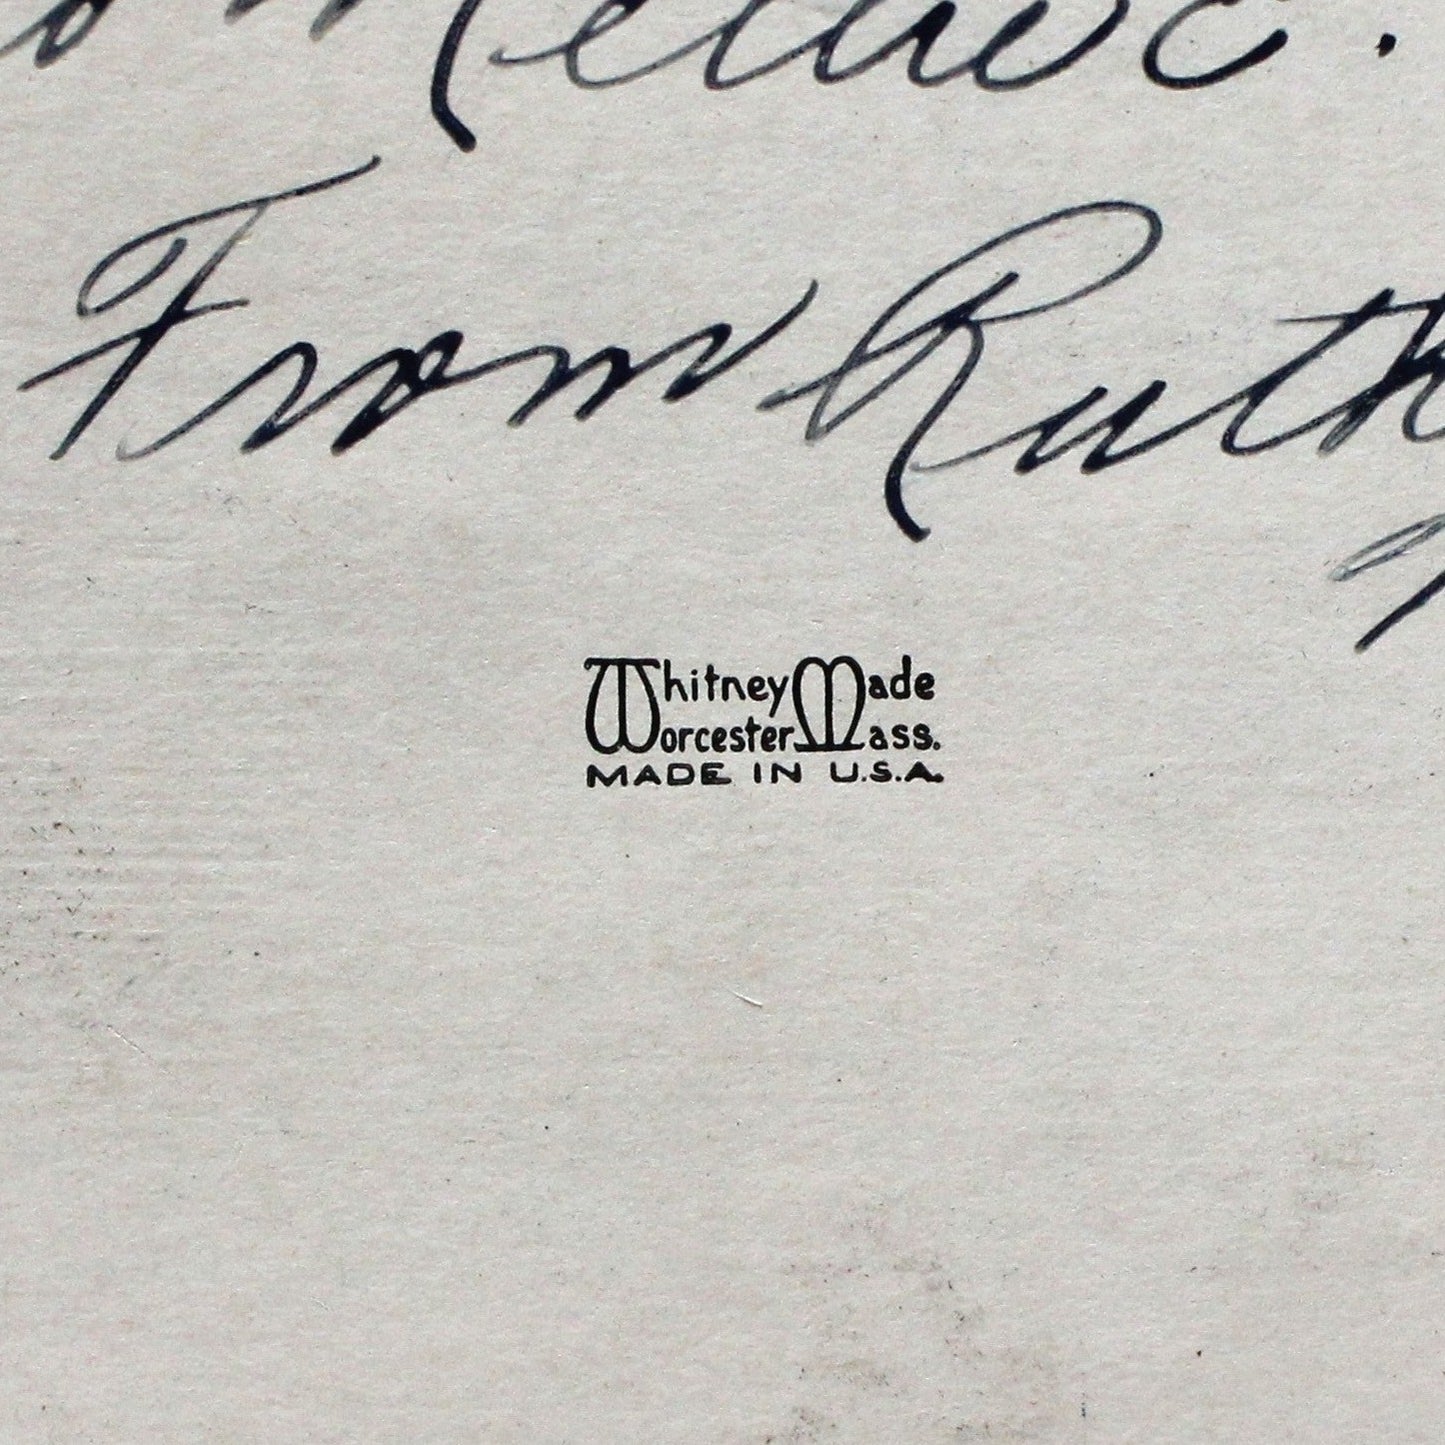 From Ruth
Whitney Made
Worcester Mass.
MADE IN U.S.A.